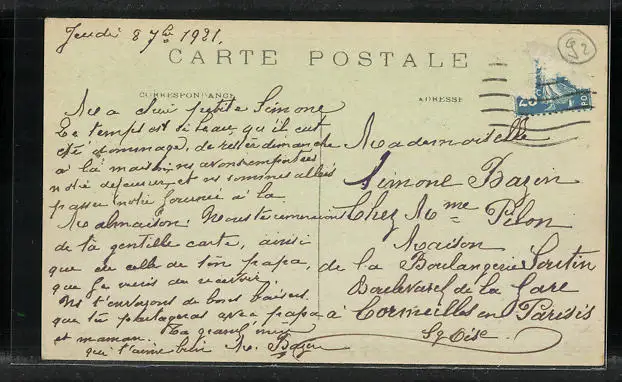 Jeudi 8 7bre 1921.
92
CARTE POSTALE
CORRESPONDANCE
ADRESSE
25
PO
Ma chère petite Simone
Le temps est si beau, qu'il eut
été dommage, de rester dimanche
à la maison, ns avons emporter
notre déjeuner, et ns sommes allés
passer notre journée à la
Malmaison. Nous te remercions
de ta gentille carte, ainsi
que de celle de ton papa,
que je viens de recevoir.
Ns t'envoyons de bons baisers
que tu partageras avec papa
et maman. Ta grand mère
qui t'aime bien M. Bazin
Mademoiselle
Simone Bazin
Chez Mme Pilon
Maison
de la Boulangerie Soutin
Boulevard de la Gare
à Cormeilles en Parisis
S & Oise